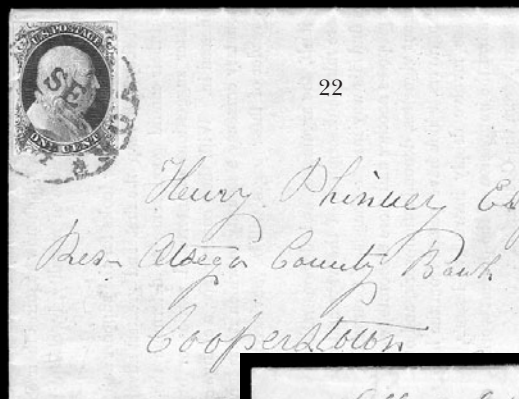 U.S. POSTAGE
ONE CENT
22
Henry Phinney Es
Pres- Otsego County Bank
Cooperstown